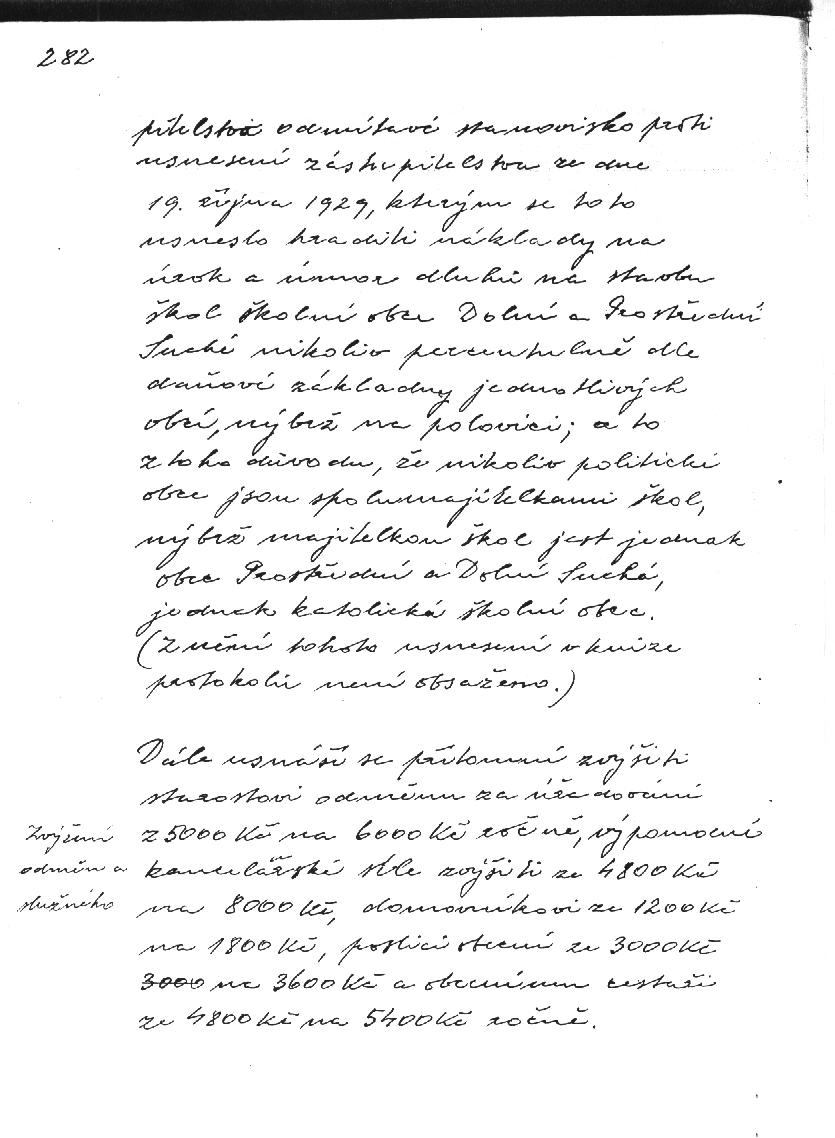 282
pitelstva odmítavé stanovisko proti
usnesení zástupitelstva ze dne
19. října 1929, kterým se toto
usneslo hraditi náklady na
úrok a úmor dluhů na stavbu
škol školní obce Dolní a Prostřední
Suché nikoliv percentuelně dle
daňové základny jednotlivých
obcí, nýbrž na polovici; a to
z toho důvodu, že nikoliv politické
obce jsou spolumajitelkami škol,
nýbrž majitelkou škol jest jednak
obec Prostřední a Dolní Suchá,
jednak katolická školní obec.
(Znění tohoto usnesení v knize
protokolů není obsaženo.)
Dále usnáší se přítomní zvýšiti
starostovi odměnu za úřadování
Zvýšení
odměn a
služného
z 5000 Kč na 6000 Kč ročně, výpomocné
kancelářské síle zvýšiti ze 4800 Kč
na 8000 Kč, domovníkovi ze 1200 Kč
na 1800 Kč, poslici obecní ze 3000 Kč
3000 na 3600 Kč a obecnímu cestáři
ze 4800 Kč na 5400 Kč ročně.